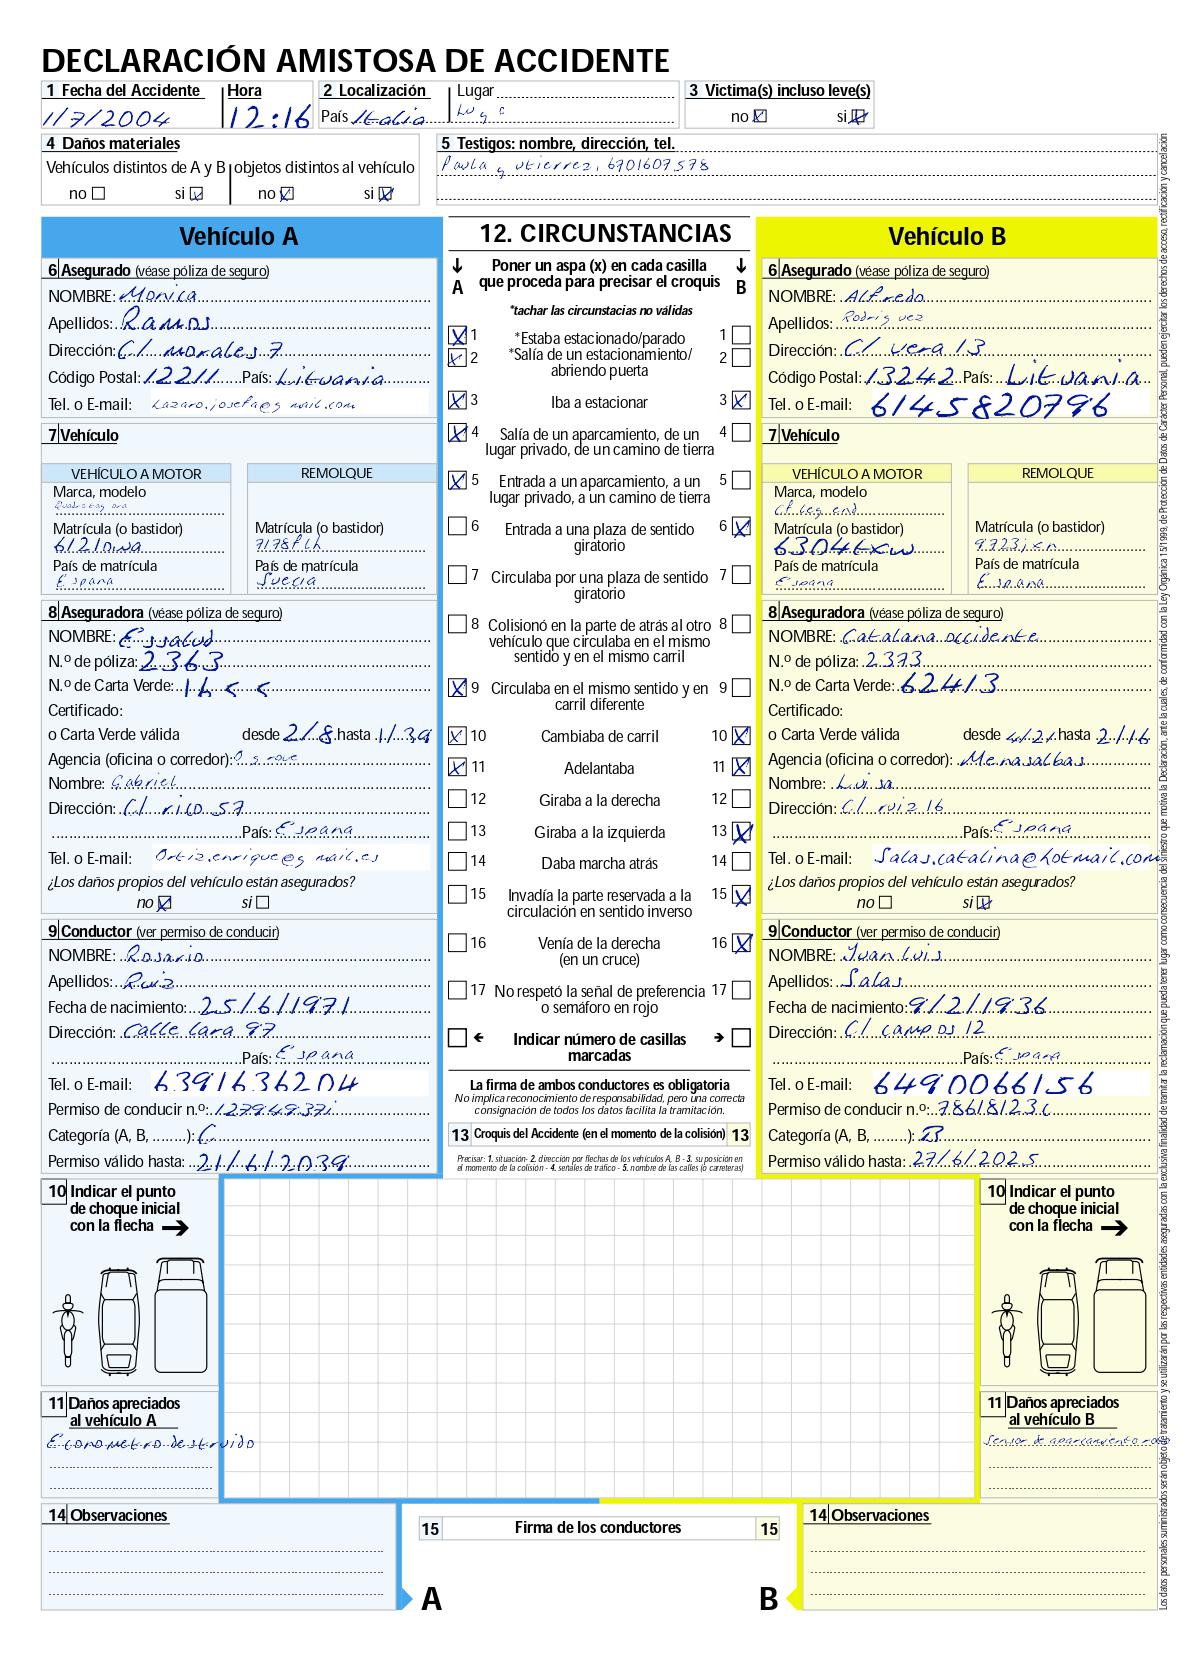 DECLARACIÓN AMISTOSA DE ACCIDENTE
1 Fecha del Accidente Hora
1/7/2004 12:16
2 Localización Lugar
País Italia Lugo
3 Victima(s) incluso leve(s)
no si
4 Daños materiales
Vehículos distintos de A y B objetos distintos al vehículo
no si no si
5 Testigos: nombre, dirección, tel.
Paula gutierrez, 6701607578
Vehículo A
6 Asegurado (véase póliza de seguro)
NOMBRE: Monica
Apellidos: Ramos
Dirección: C/ morales 7
Código Postal: 12211 País: Lituania
Tel. o E-mail: Lazaro.josefa@gmail.com
7 Vehículo
VEHÍCULO A MOTOR REMOLQUE
Marca, modelo
Matrícula (o bastidor) Matrícula (o bastidor)
6121nwa 7178flh
País de matrícula País de matrícula
Espana Suecia
8 Aseguradora (véase póliza de seguro)
NOMBRE: Essalud
N.º de póliza: 2363
N.º de Carta Verde:
Certificado:
o Carta Verde válida desde 2/8 hasta 1/39
Agencia (oficina o corredor): O grove
Nombre: Gabriel
Dirección: C/ rico 57
País: Espana
Tel. o E-mail: Ortiz.enrique@gmail.es
¿Los daños propios del vehículo están asegurados?
no si
9 Conductor (ver permiso de conducir)
NOMBRE: Rosario
Apellidos: Ruiz
Fecha de nacimiento: 25/6/1971
Dirección: Calle lara 97
País: Espana
Tel. o E-mail: 6391636204
Permiso de conducir n.º: 12794937i
Categoría (A, B, ........): C
Permiso válido hasta: 21/6/2039
10 Indicar el punto
de choque inicial
con la flecha →
11 Daños apreciados
al vehículo A
Econometro destruido
14 Observaciones
12. CIRCUNSTANCIAS
↓ Poner un aspa (x) en cada casilla ↓
A que proceda para precisar el croquis B
*tachar las circunstacias no válidas
1 *Estaba estacionado/parado 1
2 *Salía de un estacionamiento/ 2
abriendo puerta
3 Iba a estacionar 3
4 Salía de un aparcamiento, de un 4
lugar privado, de un camino de tierra
5 Entrada a un aparcamiento, a un 5
lugar privado, a un camino de tierra
6 Entrada a una plaza de sentido 6
giratorio
7 Circulaba por una plaza de sentido 7
giratorio
8 Colisionó en la parte de atrás al otro 8
vehículo que circulaba en el mismo
sentido y en el mismo carril
9 Circulaba en el mismo sentido y en 9
carril diferente
10 Cambiaba de carril 10
11 Adelantaba 11
12 Giraba a la derecha 12
13 Giraba a la izquierda 13
14 Daba marcha atrás 14
15 Invadía la parte reservada a la 15
circulación en sentido inverso
16 Venía de la derecha 16
(en un cruce)
17 No respetó la señal de preferencia 17
o semáforo en rojo
← Indicar número de casillas →
marcadas
La firma de ambos conductores es obligatoria
No implica reconocimiento de responsabilidad, pero una correcta
consignación de todos los datos facilita la tramitación.
13 Croquis del Accidente (en el momento de la colisión) 13
Precisar: 1. situación- 2. dirección por flechas de los vehículos A, B - 3. su posición en
el momento de la colisión - 4. señales de tráfico - 5. nombre de las calles (o carreteras)
15 Firma de los conductores 15
A B
Vehículo B
6 Asegurado (véase póliza de seguro)
NOMBRE: Alfredo
Apellidos: Rodriguez
Dirección: C/ vera 13
Código Postal: 13242 País: Lituania
Tel. o E-mail: 6145820796
7 Vehículo
VEHÍCULO A MOTOR REMOLQUE
Marca, modelo
Cf legend
Matrícula (o bastidor) Matrícula (o bastidor)
6304txw 9723jkn
País de matrícula País de matrícula
Espana Espana
8 Aseguradora (véase póliza de seguro)
NOMBRE: Catalana occidente
N.º de póliza: 2373
N.º de Carta Verde: 62413
Certificado:
o Carta Verde válida desde 4/21 hasta 2/16
Agencia (oficina o corredor): Menasalbas
Nombre: Luisa
Dirección: C/ ruiz 16
País: Espana
Tel. o E-mail: Salas.catalina@hotmail.com
¿Los daños propios del vehículo están asegurados?
no si
9 Conductor (ver permiso de conducir)
NOMBRE: Juan luis
Apellidos: Salas
Fecha de nacimiento: 9/2/1936
Dirección: C/ campos 12
País: Espana
Tel. o E-mail: 6490066156
Permiso de conducir n.º: 78618123c
Categoría (A, B, ........): B
Permiso válido hasta: 27/6/2025
10 Indicar el punto
de choque inicial
con la flecha →
11 Daños apreciados
al vehículo B
Sensor de aparcamiento roto
14 Observaciones
Los datos personales suministrados serán objeto de tratamiento y se utilizarán por las respectivas entidades aseguradas con la exclusiva finalidad de tramitar la reclamación que pueda tener lugar como consecuencia del siniestro que motiva la Declaración, ante la cuales, de conformidad con la Ley Orgánica 15/1999, de Protección de Datos de Carácter Personal, pueden ejercitar los derechos de acceso, rectificación y cancelación